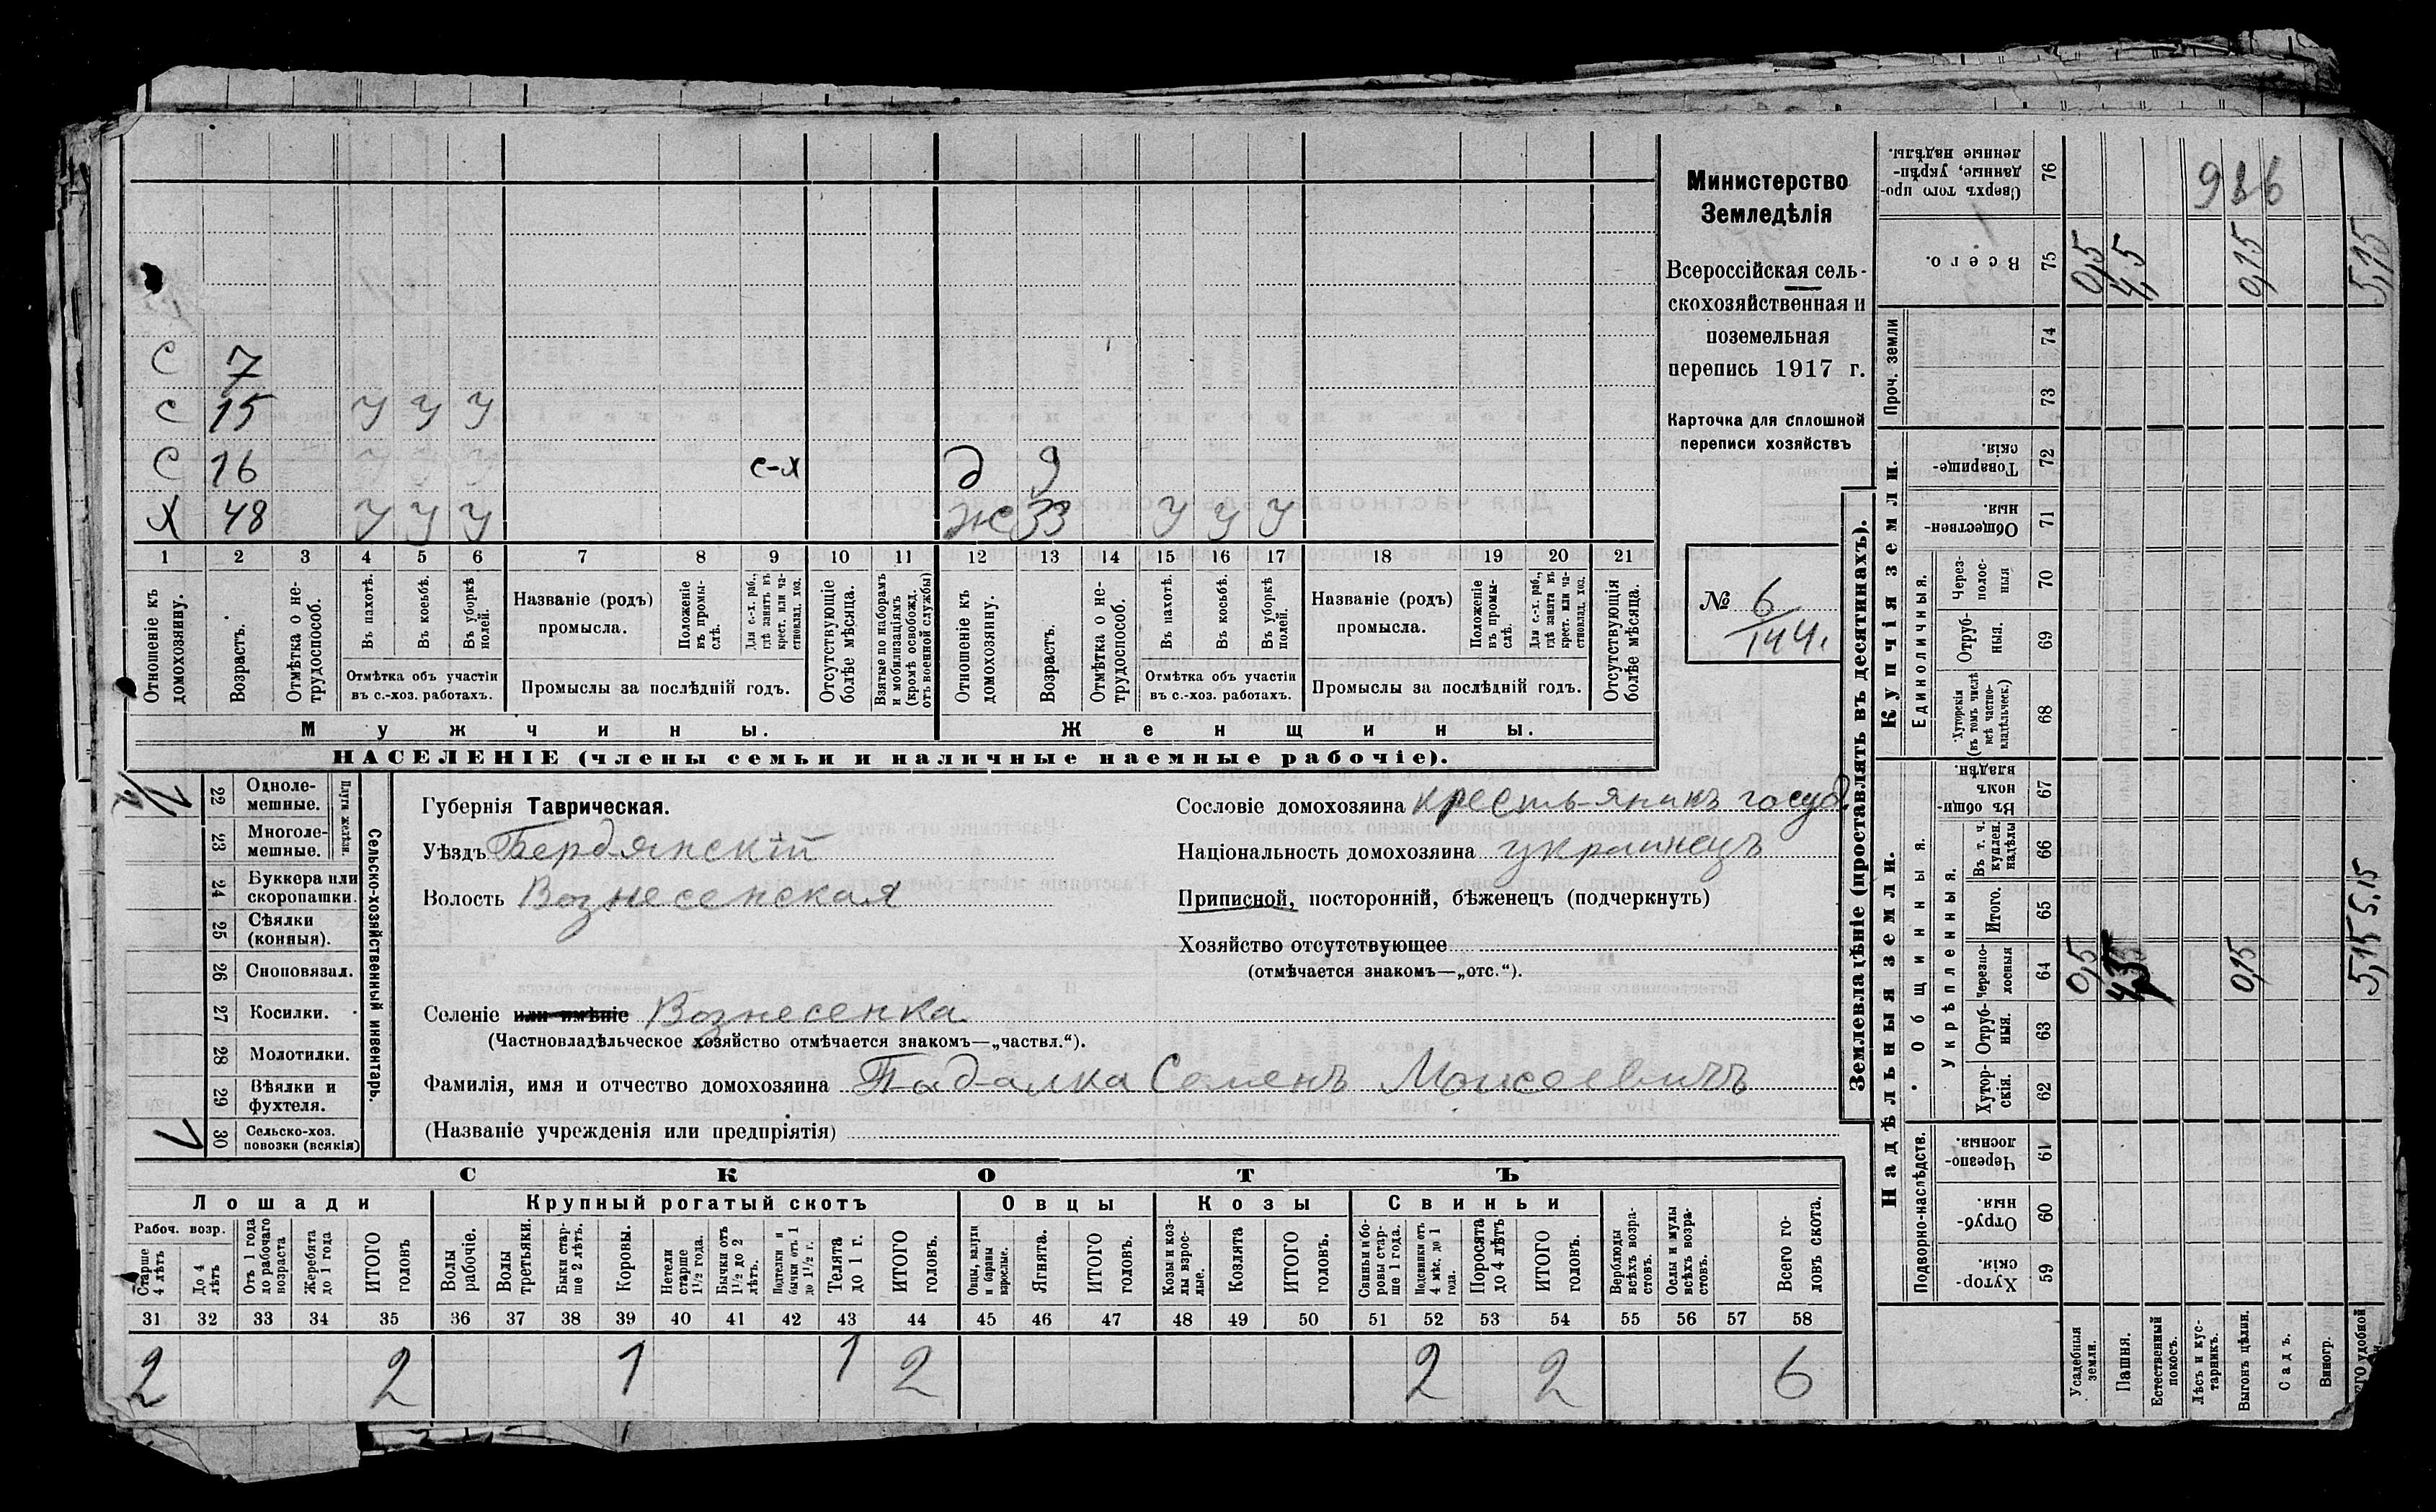 С 7
С 15 У У У
С 16 У У У с-х д 9
Х 48 У У У Ж 33 У У У
1 2 3 4 5 6 7 8 9 10 11 12 13 14 15 16 17 18 19 20 21
Отношеніе къ домохозяину.
Возрастъ.
Отмѣтка о нетрудоспособ.
Въ пахотѣ.
Въ косьбѣ.
Въ уборкѣ полей.
Отмѣтка объ участіи
въ с.-хоз. работахъ.
Названіе (родъ)
промысла.
Положеніе въ промыслѣ.
Для с.-х. раб., гдѣ занятъ въ крест. или частновлад. хоз.
Промыслы за послѣдній годъ.
Отсутствующіе болѣе мѣсяца.
Взятые по наборамъ и мобилизаціямъ (кромѣ освобожд. отъ военной службы)
Отношеніе къ домохозяину.
Возрастъ.
Отмѣтка о нетрудоспособ.
Въ пахотѣ.
Въ косьбѣ.
Въ уборкѣ полей.
Отмѣтка объ участіи
въ с.-хоз. работахъ.
Названіе (родъ)
промысла.
Положеніе въ промыслѣ.
Для с.-х. раб., гдѣ занята въ крест. или частновлад. хоз.
Промыслы за послѣдній годъ.
Отсутствующія болѣе мѣсяца.
Мужчины. Женщины.
НАСЕЛЕНІЕ (члены семьи и наличные наемные рабочіе).
Министерство
Земледѣлія
Всероссійская сель-
скохозяйственная и
поземельная
перепись 1917 г.
Карточка для сплошной
переписи хозяйствъ
№ 6
144.
22 Одноле-
мешные.
23 Многоле-
мешные.
Плуги желѣзн.
24 Буккера или
скоропашки.
25 Сѣялки
(конныя).
26 Сноповязал.
27 Косилки.
28 Молотилки.
29 Вѣялки и
фухтеля.
30 Сельско-хоз.
повозки (всякія)
Сельско-хозяйственный инвентарь.
Губернія Таврическая.
Уѣздъ Бердянскій
Волость Вознесенская
Сословіе домохозяина крестьянинъ госуд.
Національность домохозяина украинецъ
Приписной, посторонній, бѣженецъ (подчеркнуть)
Хозяйство отсутствующее
(отмѣчается знакомъ—„отс.“).
Селеніе или имѣніе Вознесенка
(Частновладѣльческое хозяйство отмѣчается знакомъ—„частвл.“).
Фамилія, имя и отчество домохозяина Падалка Семенъ Моисеевичъ
(Названіе учрежденія или предпріятія)
СКОТЪ
Лошади Крупный рогатый скотъ Овцы Козы Свиньи
Рабоч. возр.
Старше 4 лѣтъ
До 4 лѣтъ
Отъ 1 года до рабочаго возраста
Жеребята до 1 года
ИТОГО головъ
Волы рабочіе.
Волы третьяки.
Быки старше 2 лѣтъ.
Коровы.
Нетели старше 1½ года.
Бычки отъ 1½ до 2 лѣтъ.
Подтелки и бычки отъ 1 до 1½ г.
Телята до 1 г.
ИТОГО головъ.
Овцы, валухи и бараны взрослые.
Ягнята.
ИТОГО головъ.
Козы и козлы взрослые.
Козлята
ИТОГО головъ.
Свиньи и боровы старше 1 года.
Подсвинки отъ 4 мѣс. до 1 года.
Поросята до 4 лѣтъ
ИТОГО головъ.
Верблюды всѣхъ возрастовъ.
Ослы и мулы всѣхъ возрастовъ.
Всего головъ скота.
31 32 33 34 35 36 37 38 39 40 41 42 43 44 45 46 47 48 49 50 51 52 53 54 55 56 57 58
2 2 1 1 2 2 2 6
Землевладѣніе (проставлять въ десятинахъ).
Надѣльныя земли.
Подворно-наслѣдств.
Хуторскія. 59
Отрубныя. 60
Черезполосныя. 61
Общинныя.
Укрѣпленныя.
Хуторскія. 62
Отрубныя. 63
Черезполосныя 64
Итого. 65
Въ т. ч. куплен. надѣлы 66
Въ общиномъ владѣн. 67
Купчія земли.
Единоличныя.
Хуторскія (въ томъ числѣ всѣ частновладѣльческ.) 68
Отрубныя. 69
Черезполосныя 70
Общественныя. 71
Товарищескія. 72
Проч. земли
73 74
Всего. 75
Сверхъ того проданные, укрѣпленные надѣлы. 76
Усадебныя земли. 0,5 0,5
Пашня. 4,5 4,5
Естественный покосъ.
Лѣсъ и кустарникъ.
Выгонъ цѣлин. 0,15 0,15
Садъ.
Виногр.
удобной 5,15 5,15 5,15
986